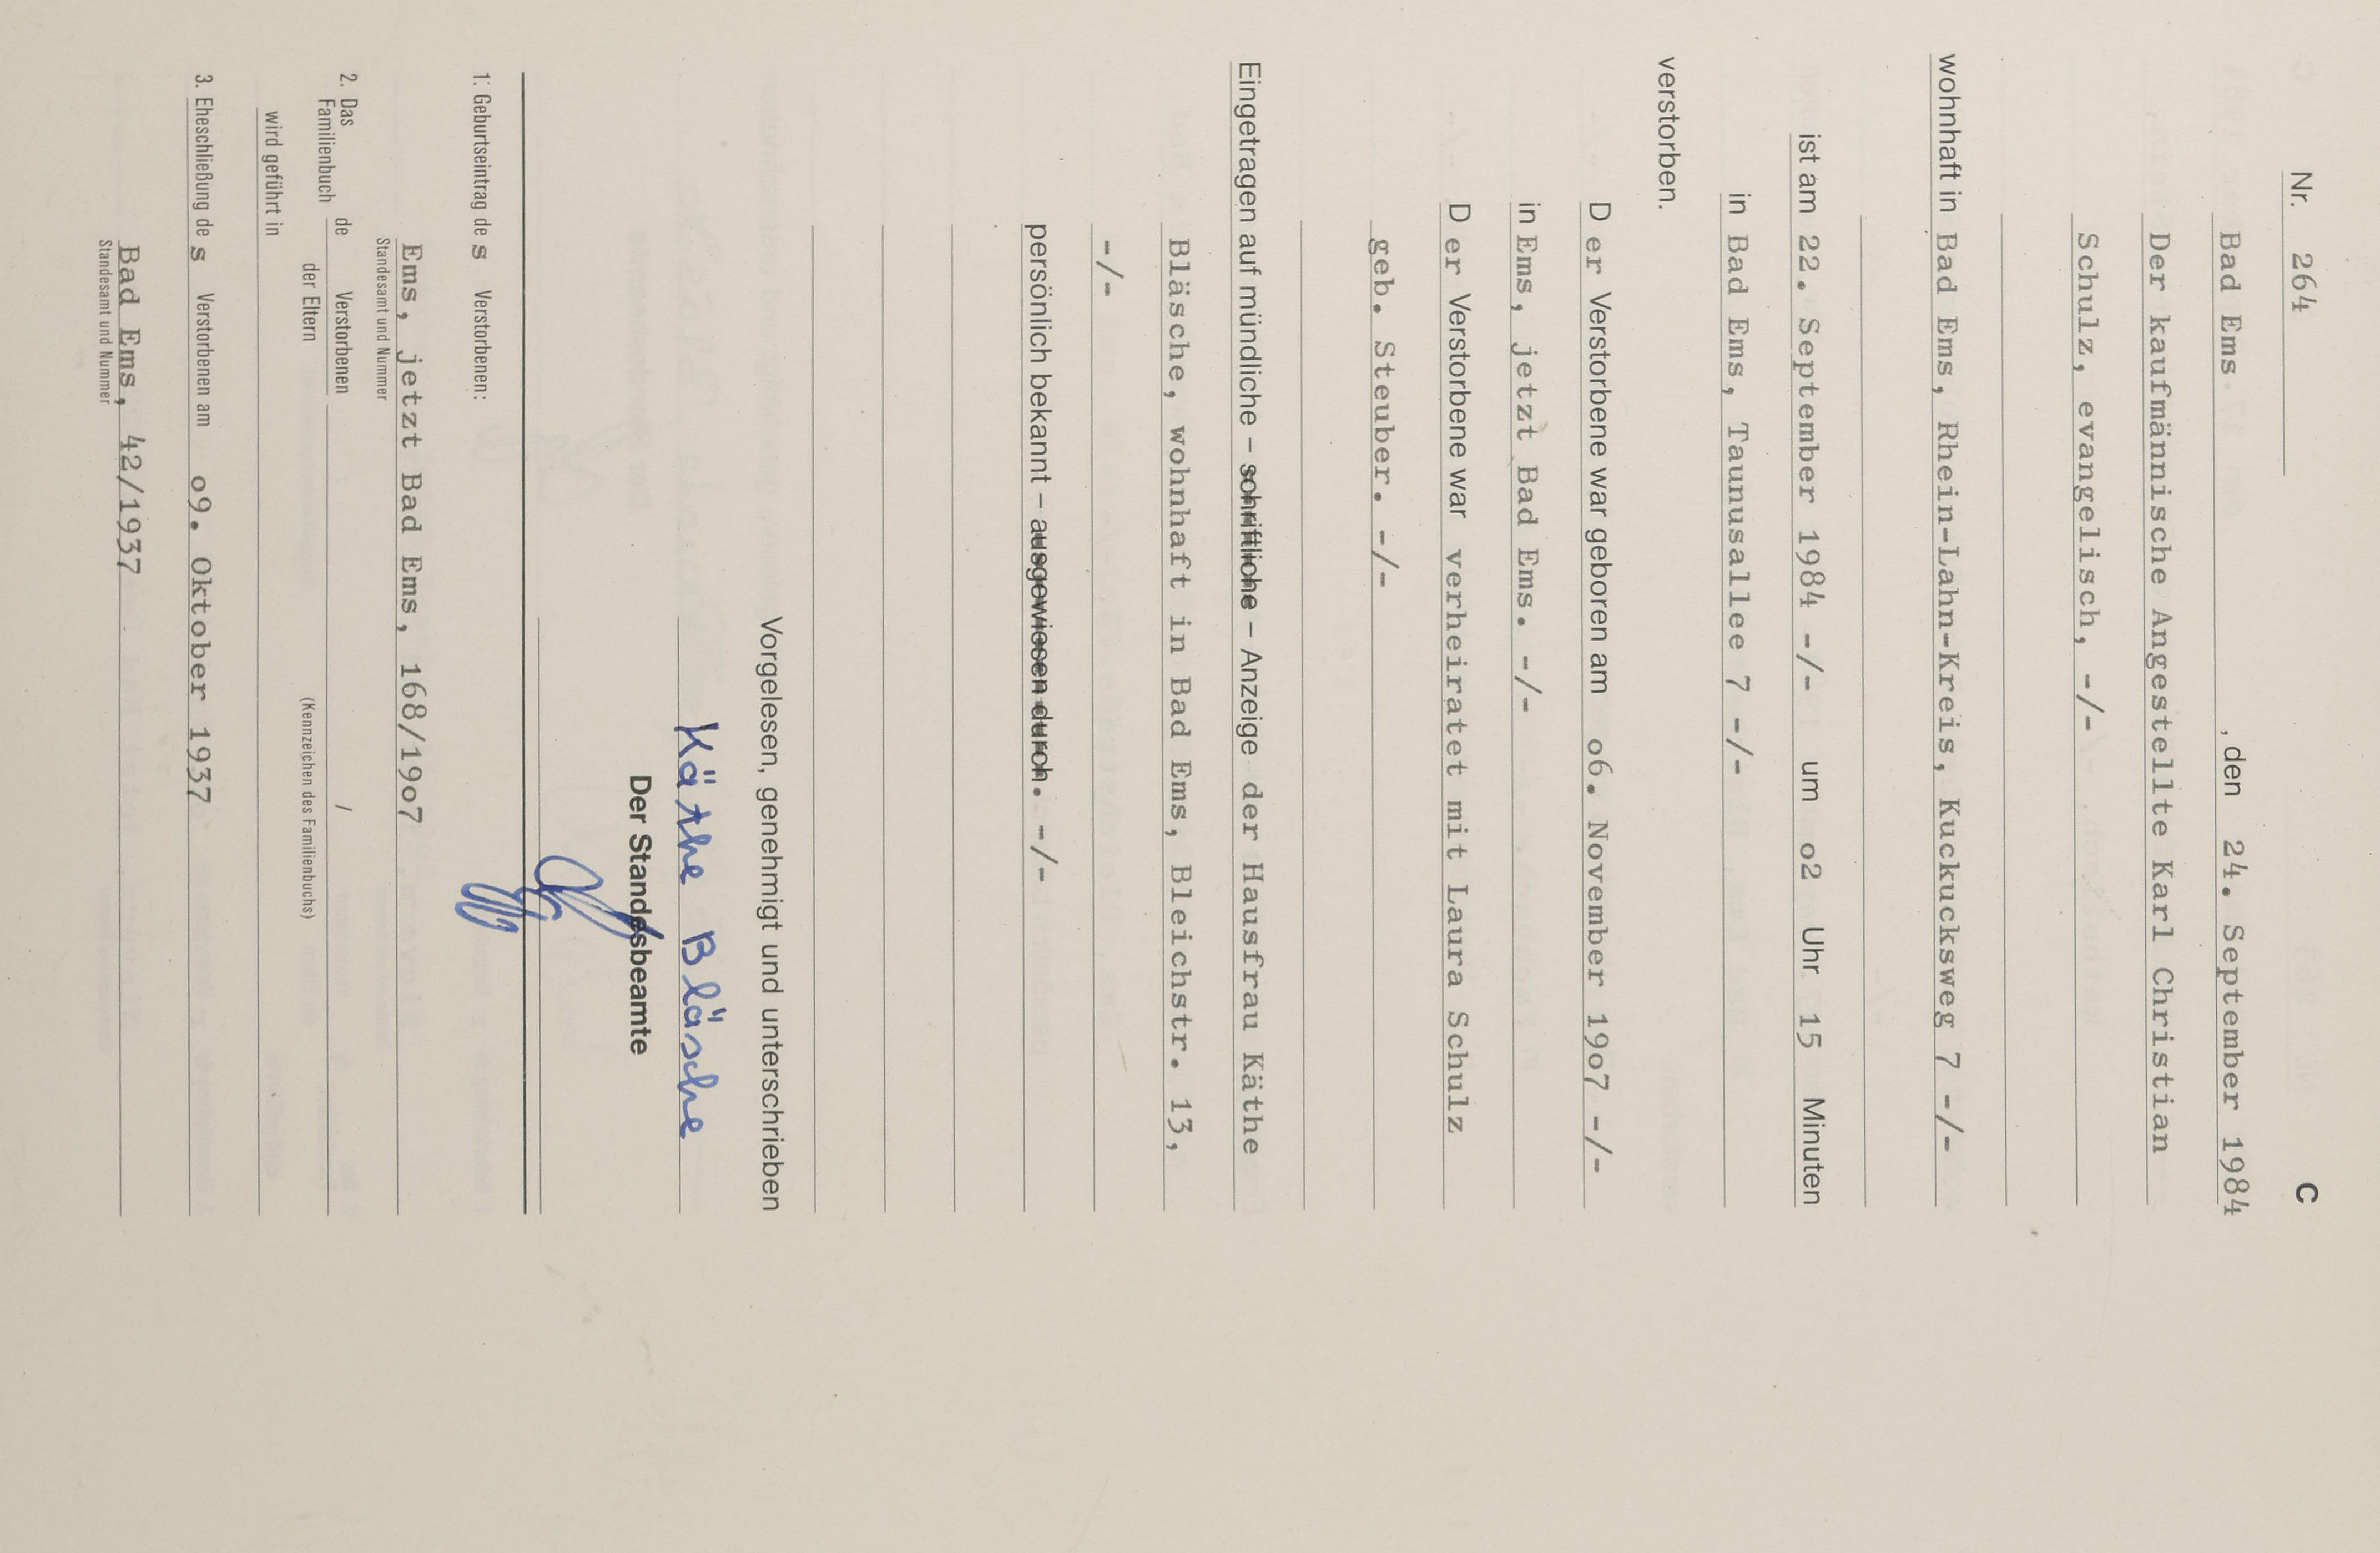 C
Nr. 264
Bad Ems, den 24. September 1984
Der kaufmännische Angestellte Karl Christian
Schulz, evangelisch, -/-
wohnhaft in Bad Ems, Rhein-Lahn-Kreis, Kuckucksweg 7 -/-
ist am 22. September 1984 -/- um o2 Uhr 15 Minuten
in Bad Ems, Taunusallee 7 -/-
verstorben.
D er Verstorbene war geboren am o6. November 19o7 -/-
in Ems, jetzt Bad Ems. -/-
D er Verstorbene war verheiratet mit Laura Schulz
geb. Steuber. -/-
Eingetragen auf mündliche – schriftliche – Anzeige der Hausfrau Käthe
Bläsche, wohnhaft in Bad Ems, Bleichstr. 13,
-/-
persönlich bekannt – ausgewiesen durch. -/-
Vorgelesen, genehmigt und unterschrieben
Käthe Bläsche
Der Standesbeamte
1. Geburtseintrag de s Verstorbenen:
Ems, jetzt Bad Ems, 168/19o7
Standesamt und Nummer
2. Das Familienbuch de Verstorbenen /
der Eltern (Kennzeichen des Familienbuchs)
wird geführt in
3. Eheschließung de s Verstorbenen am o9. Oktober 1937
Bad Ems, 42/1937
Standesamt und Nummer